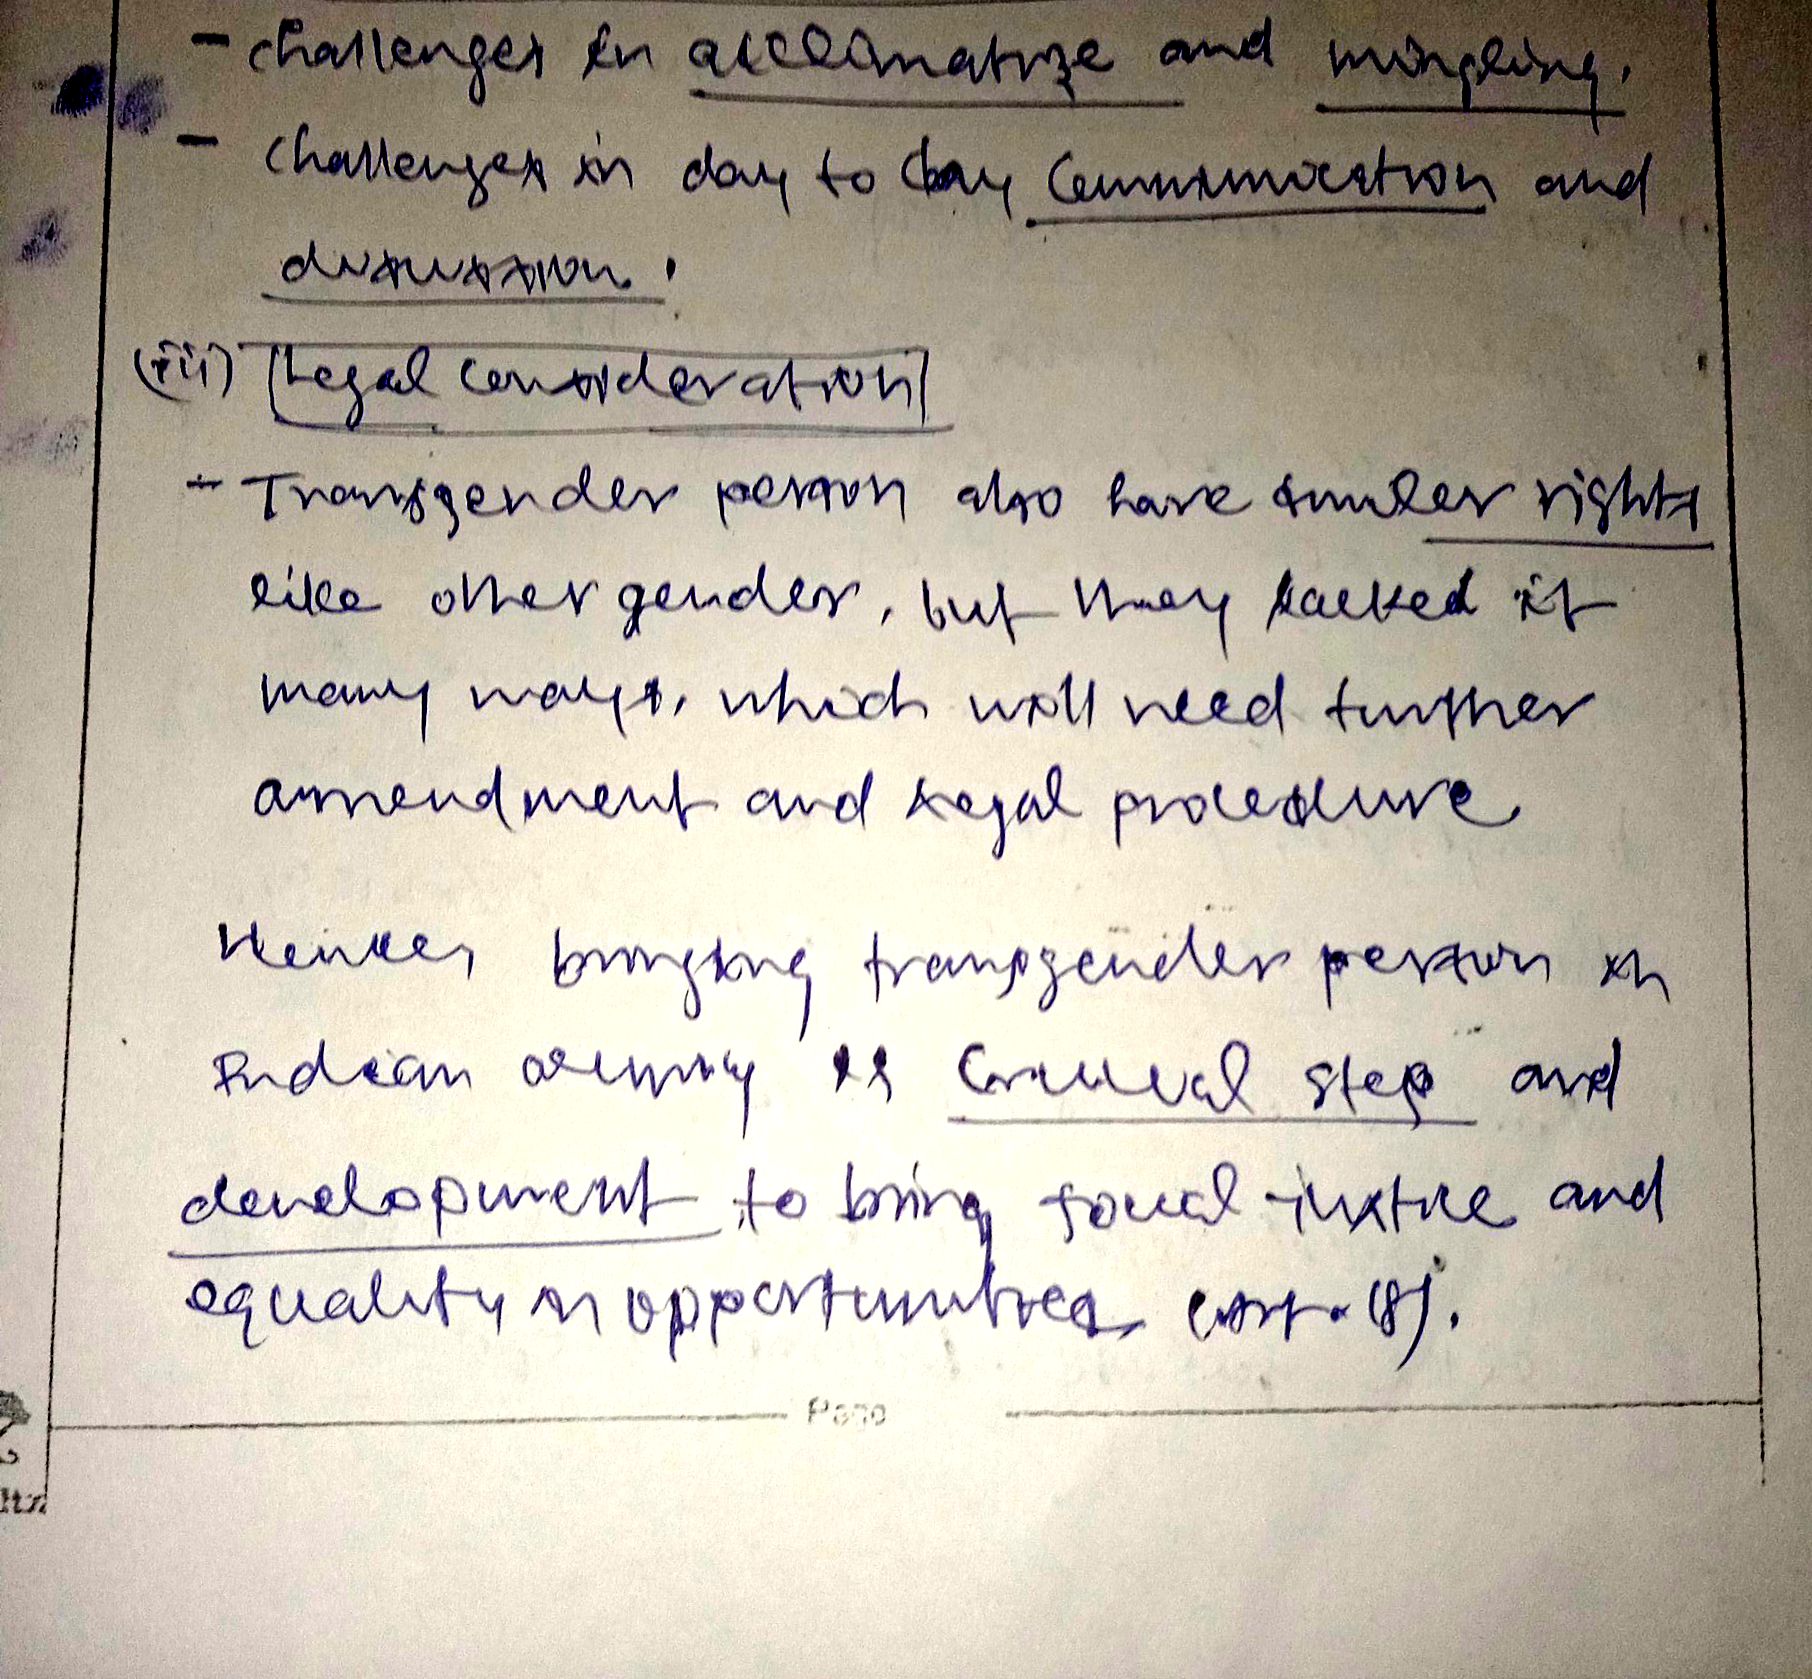 - challenges in acclimatize and mingling.
- challenges in day to day communication and
discussion.
(iii) Legal consideration
- Transgender person also have similer rights
like other gender, but they lacked it
many ways, which will need further
ammendment and legal procedure
Hence, bringing transgender person in
Indian army is crucial step and
development to bring social justice and
equality in opportunities (Art. 18).
Page